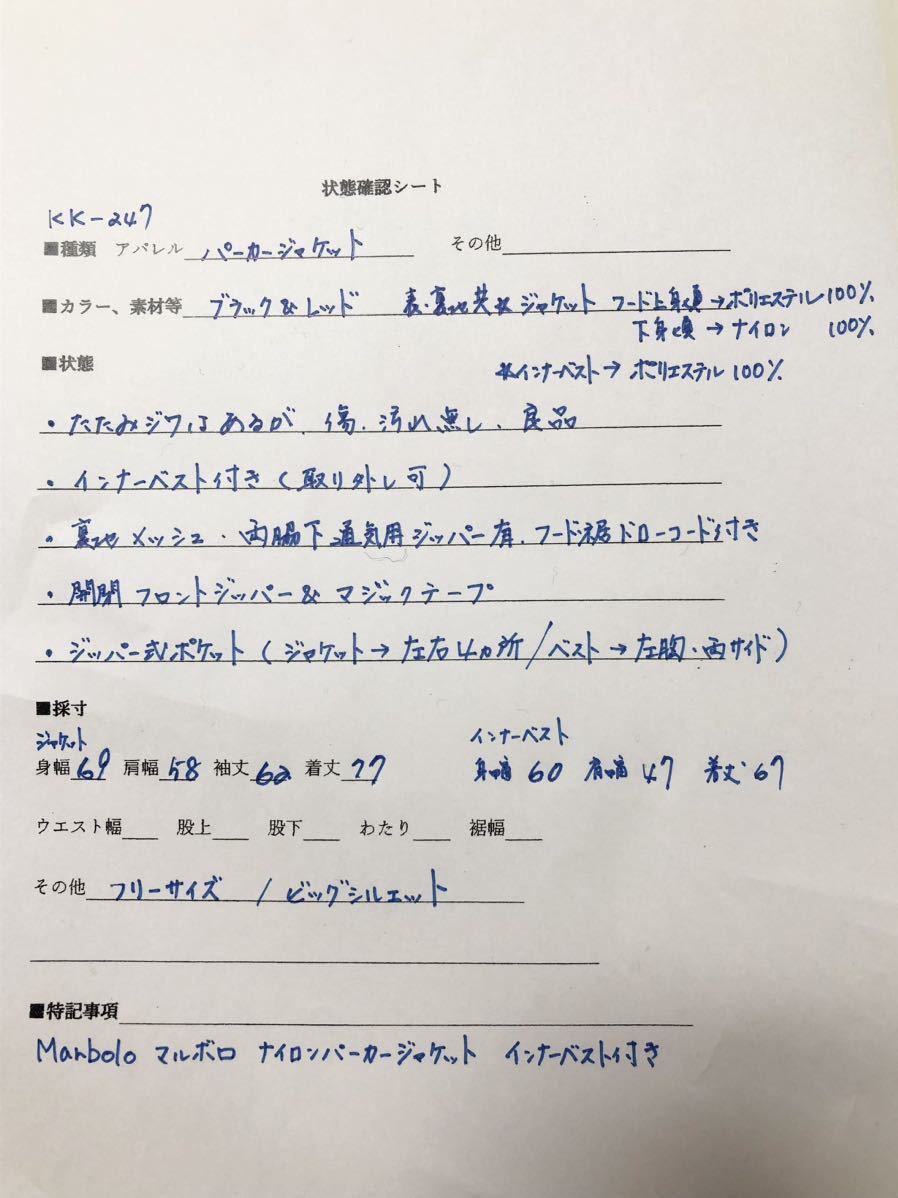 状態確認シート
KK-247
■種類 アパレル パーカージャケット その他
■カラー、素材等 ブラック&レッド 表・裏地共※ジャケット フード上身頃→ポリエステル100%
下身頃→ナイロン 100%
■状態 ※インナーベスト→ポリエステル100%
・たたみジワはあるが、傷、汚れ無し、良品
・インナーベスト付き(取り外し可)
・裏地メッシュ・両脇下通気用ジッパー有、フード裾ドローコード付き
・開閉フロントジッパー&マジックテープ
・ジッパー式ポケット(ジャケット→左右4ヵ所/ベスト→左胸・両サイド)
■採寸
ジャケット インナーベスト
身幅69 肩幅58 袖丈62 着丈77 身幅60 肩幅47 着丈67
ウエスト幅 股上 股下 わたり 裾幅
その他 フリーサイズ /ビッグシルエット
■特記事項
Manbolo マルボロ ナイロンパーカージャケット インナーベスト付き